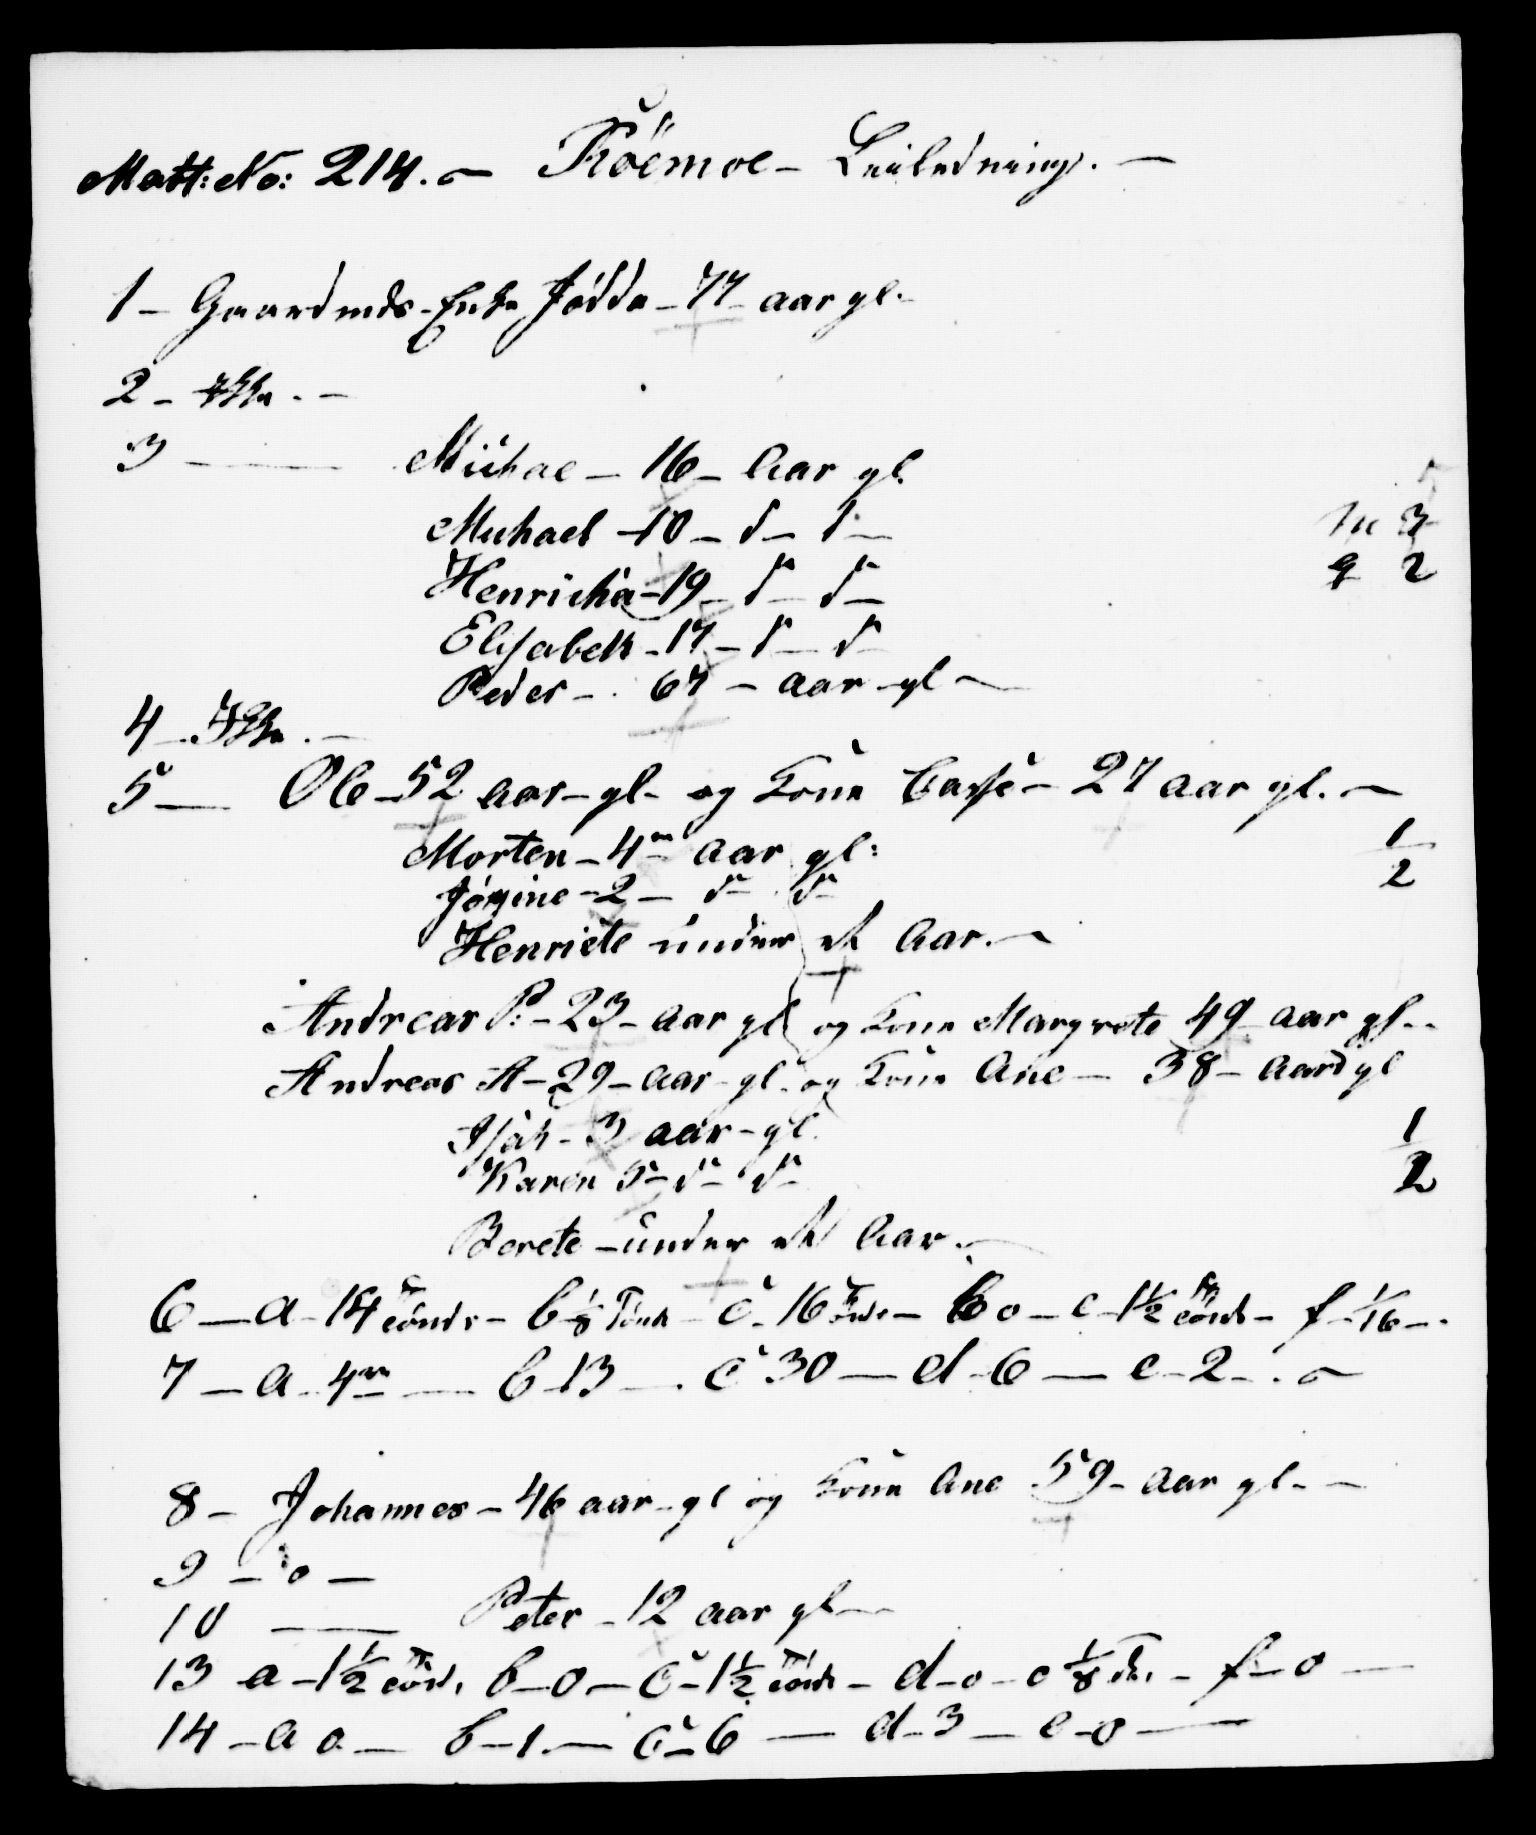 Matt: No: 214. Röemoe – Leilending. –
1 – Gaardmds-Enke Jödda – 77 aar gl.
2 – Ikke. –
3 – Michae – 16 – Aar gl.
Michael – 10 – d – d –
Henricha – 19 – d – d –
Elisabeth – 17 – d – d
Peder – 67 – aar gl –
3
2
4 – Ikke. –
5 – Ole – 52 aar – gl – og Kone – 27 aar gl. –
Morten – 4 aar gl:
Jörgine – 2 – d – d –
Henriete under et Aar. –
1
2
Andreas P: – 23 – aar gl og Kone Margrete 49 aar gl. .
Andreas A – 29 – aar – gl. og Kone Ane – 38 – aar gl
Isak – 3 aar – gl.
Karen 5 – d – d –
Berete – under et Aar. –
1
2
6 – a – 14 Tönde – b 1/8 Tönde – c – 16 Tönde – o – e – 1½ Tönde – f – 1/16 – .
7 – a – 4 – b 13 – c 30 – d – 6 – e – 2 – .
8 – Johannes – 46 aar – gl og Kone Ane 59 – aar gl. –
9 – o –
10 – Peter – 12 aar gl –
13 a – 1½ Tönd, b – o – c – 1½ Tönde – d – o – e 1/8 do, – f – o –
14 – a o – b – 1. – c – 6 – d – 3 – e – o –